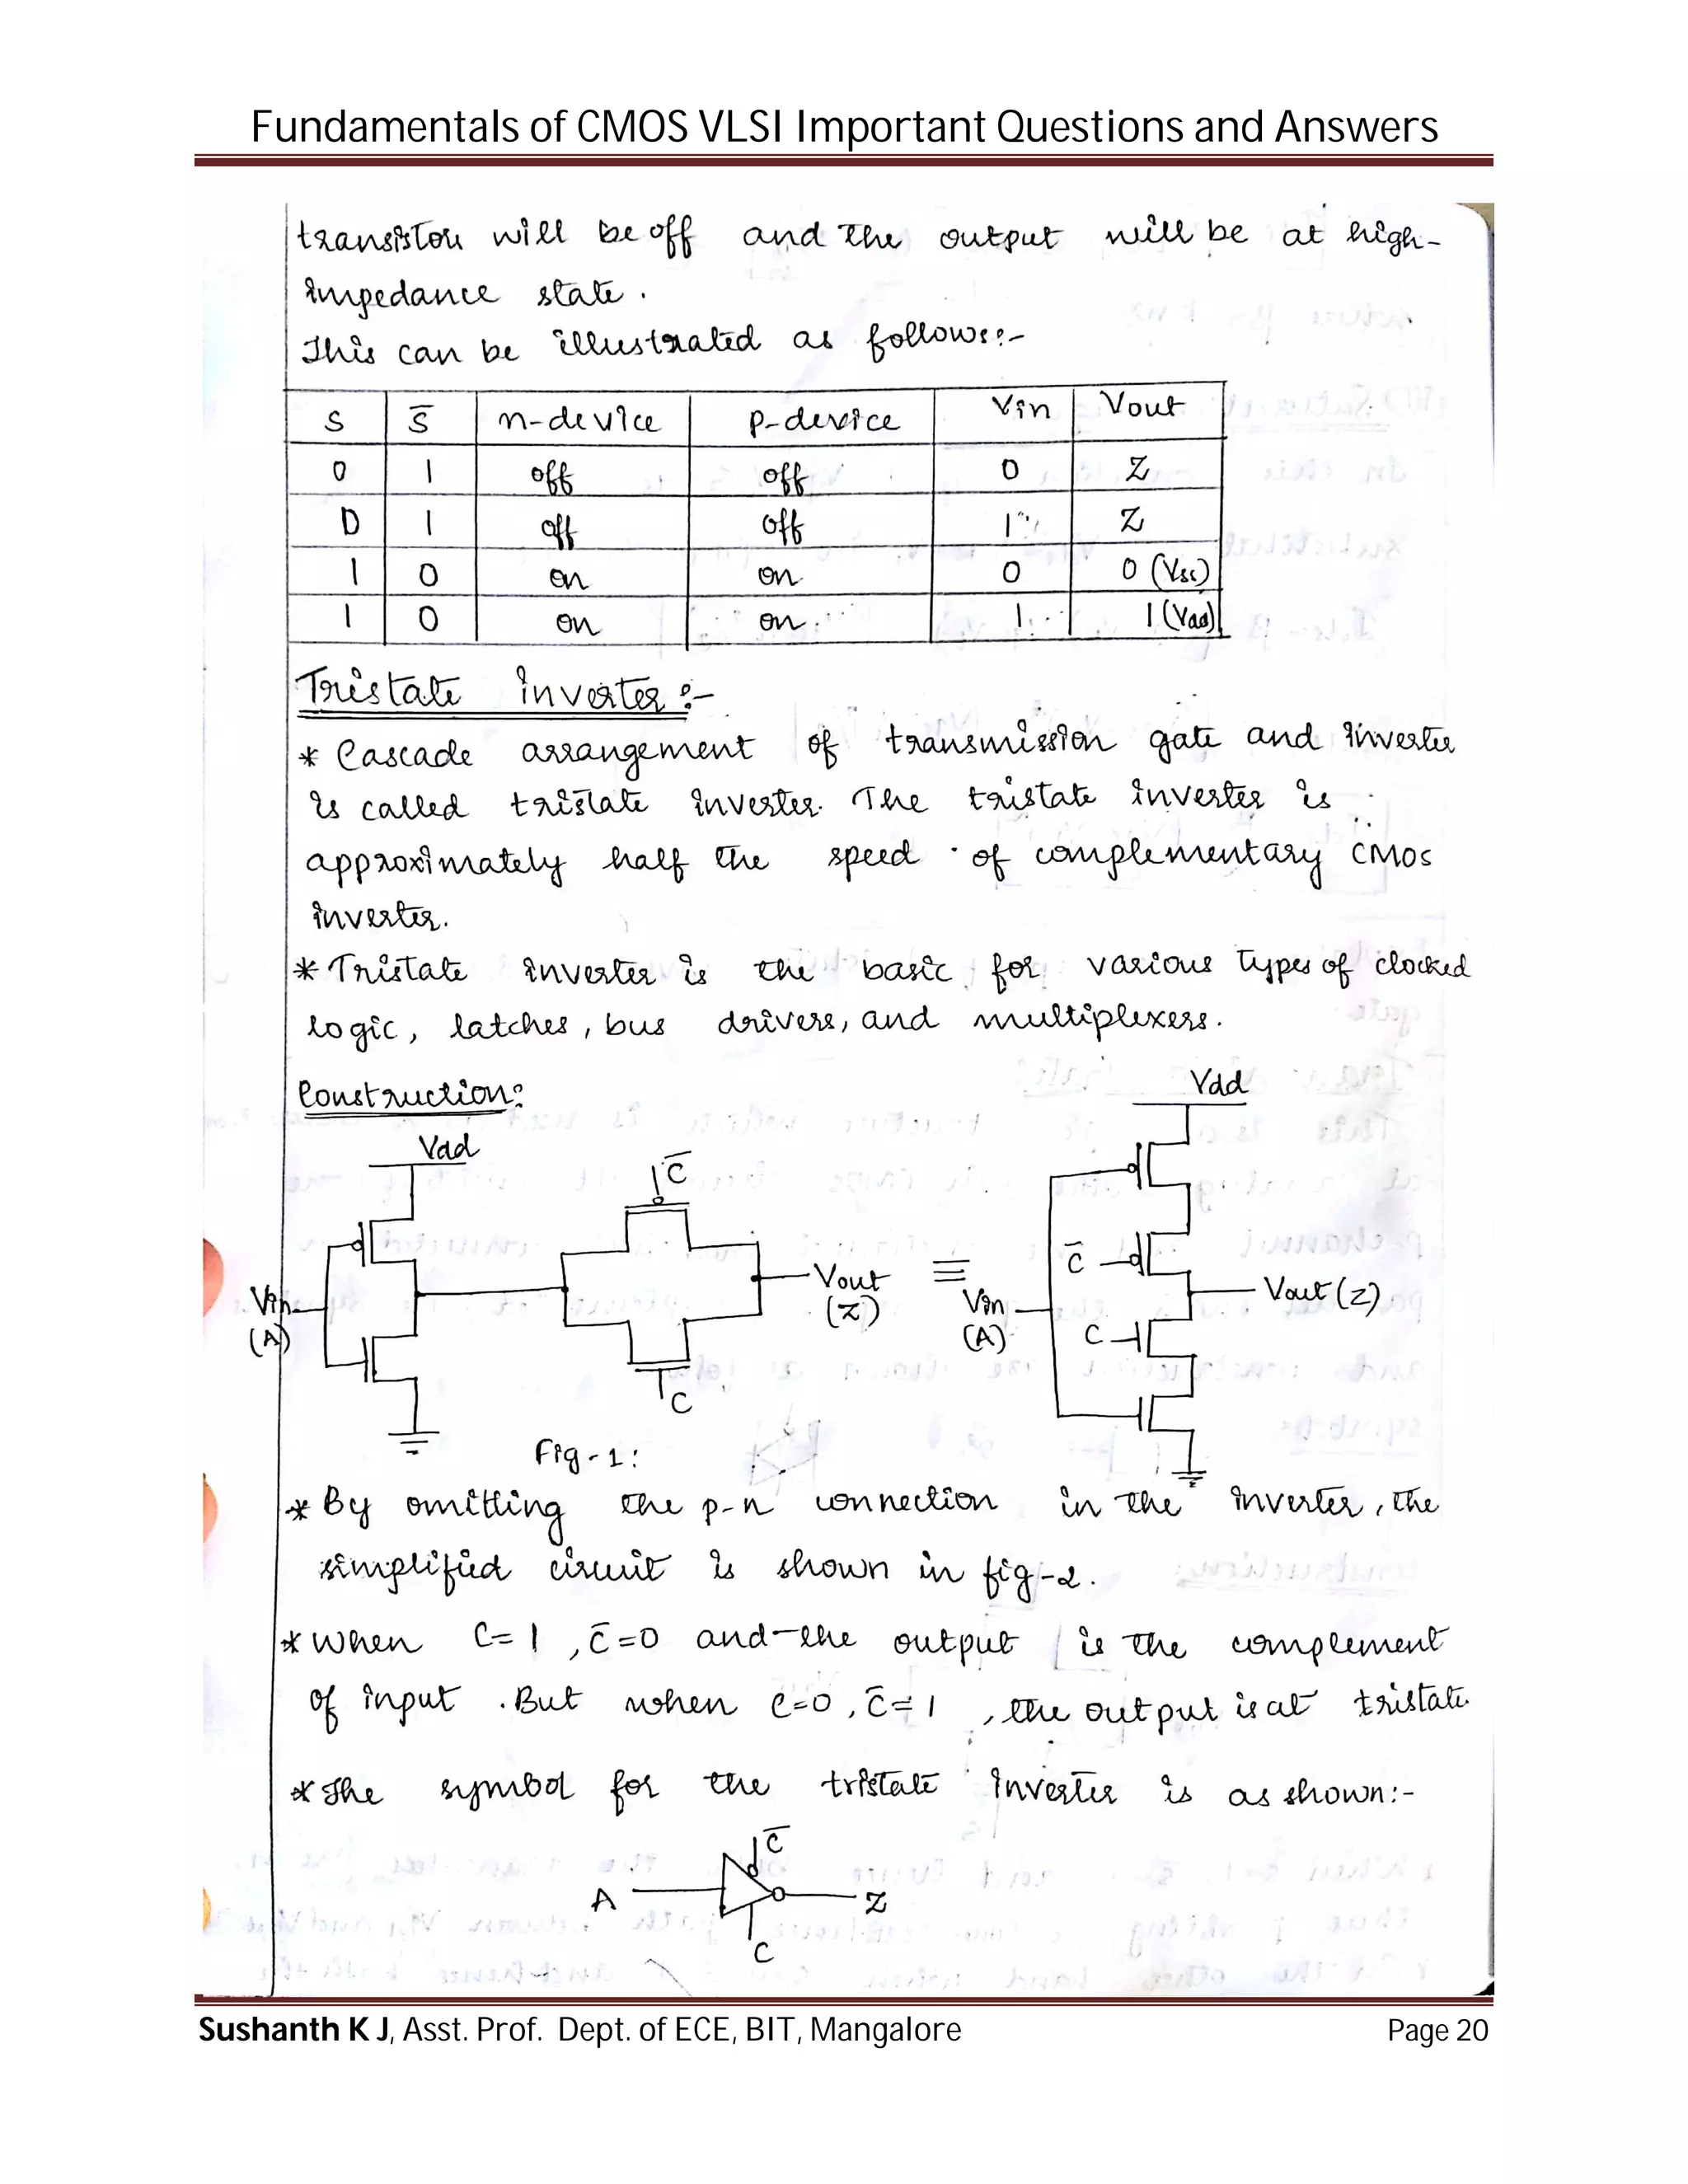 Fundamentals of CMOS VLSI Important Questions and Answers
transistor will be off and the output will be at high-
impedance state.
This can be illustrated as follows:-
S S̅ n-device p-device Vin Vout
0 1 off off 0 Z
0 1 off off 1 Z
1 0 on on 0 0 (Vss)
1 0 on on 1 1 (Vdd)
Tristate inverter:-
* Cascade arrangement of transmission gate and inverter
is called tristate inverter. The tristate inverter is
approximately half the speed of complementary CMOS
inverter.
* Tristate inverter is the basic for various types of clocked
logic, latches, bus drivers, and multiplexers.
Construction:
Vdd
C̅
Vin
(A)
Vout
(Z)
C
≡
Vdd
C̅
Vin
(A)
C
Vout (Z)
Fig-1:
* By omitting the p-n connection in the inverter, the
simplified circuit is shown in fig-2.
* When C=1, C̅=0 and the output is the complement
of input. But when C=0, C̅=1, the output is at tristate
* The symbol for the tristate inverter is as shown:-
C̅
A
Z
C
Sushanth K J, Asst. Prof. Dept. of ECE, BIT, Mangalore
Page 20